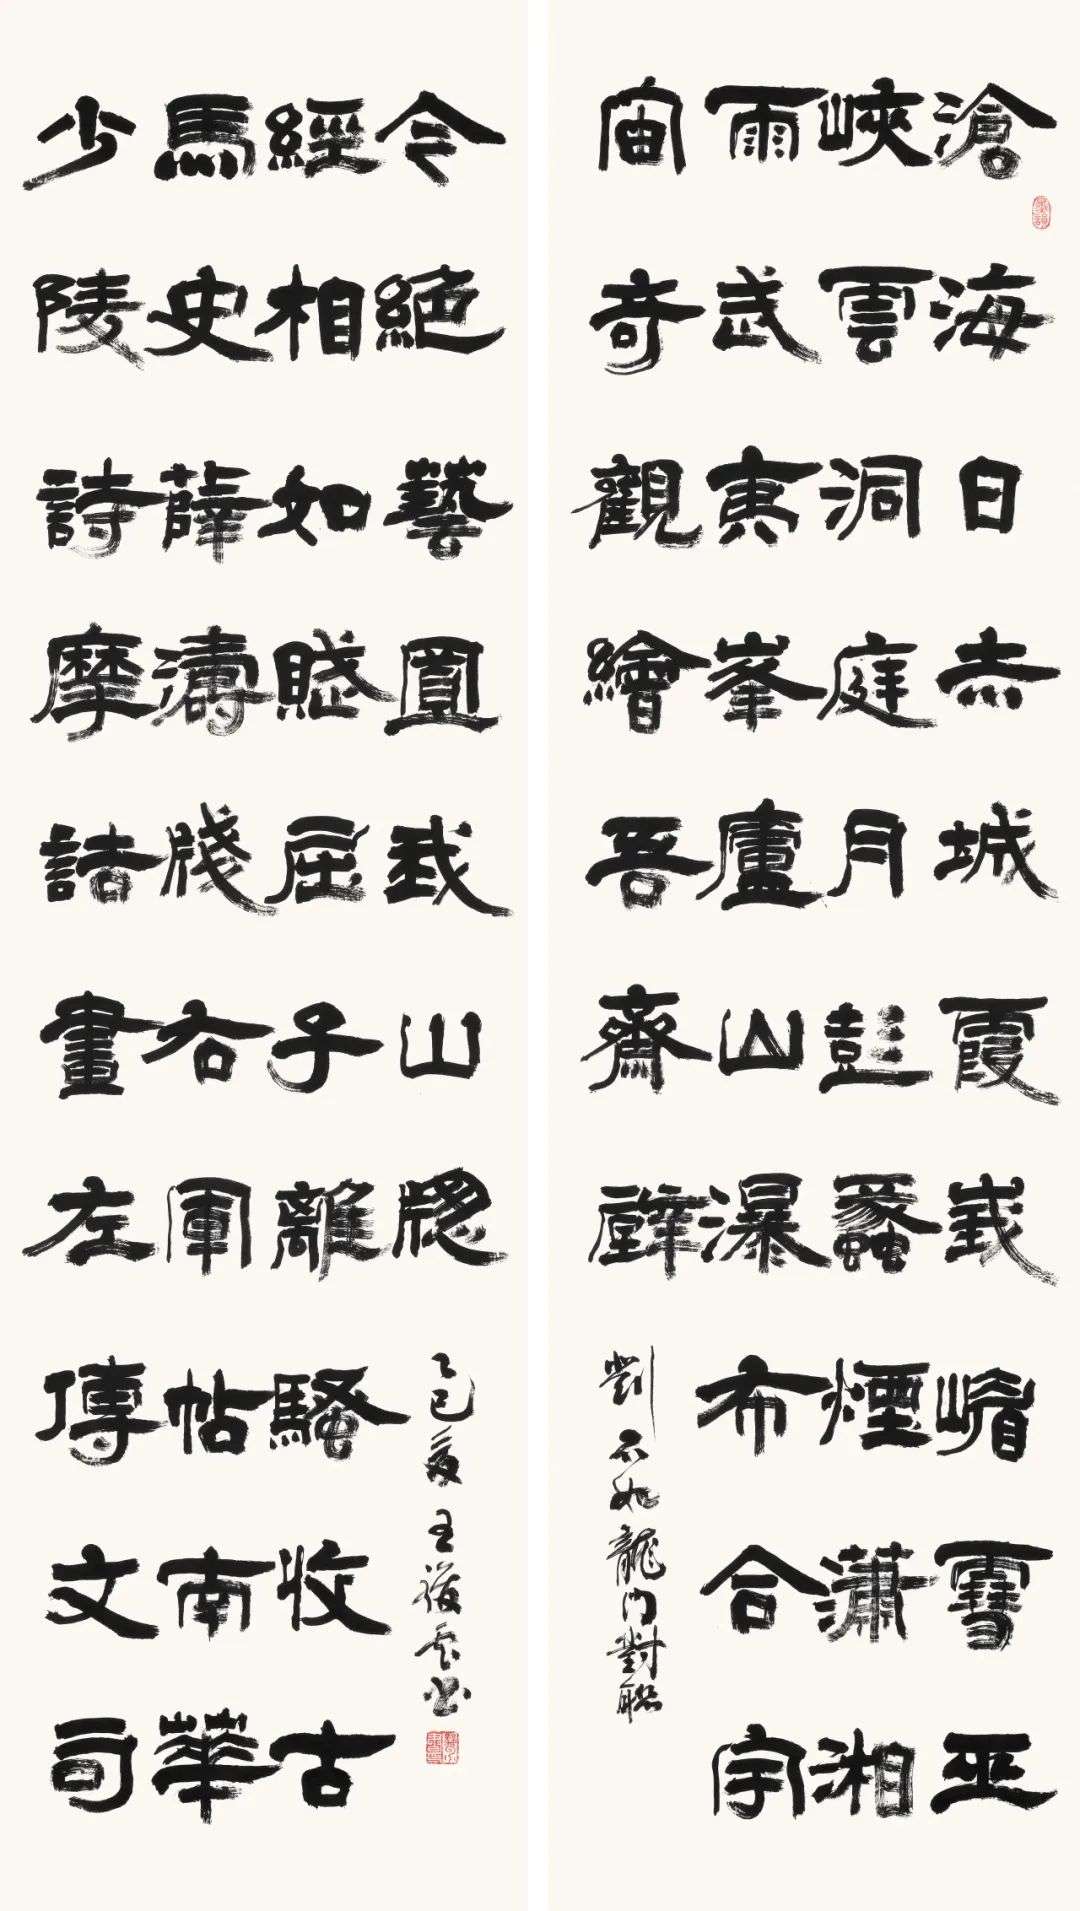 滄海日赤城霞峨嵋雪巫
峽雲洞庭月彭蠡煙瀟湘
雨武夷峯廬山瀑布合宇
宙奇觀繪吾齋壁
鄧石如龍門對聯
少陵詩摩詰畫左傳文司
馬史薛濤牋右軍帖南華
經相如賦屈子離騷收古
今絕藝置我山牕
乙巳夏王書